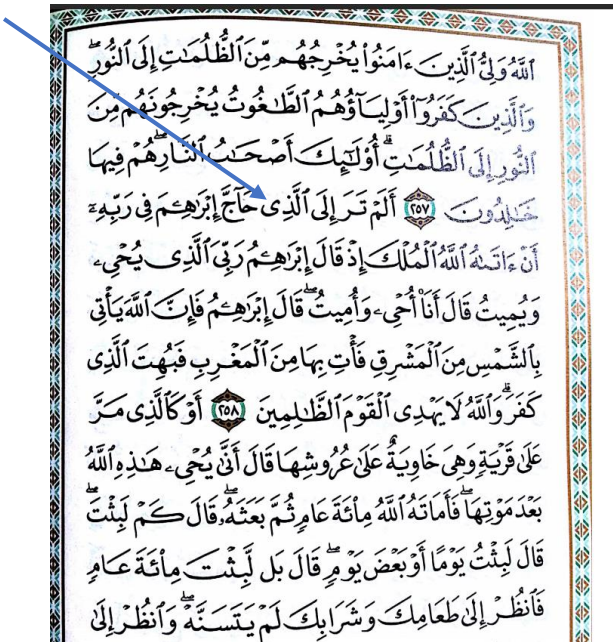 ٱللَّهُ وَلِىُّ ٱلَّذِينَ ءَامَنُوا۟ يُخْرِجُهُم مِّنَ ٱلظُّلُمَـٰتِ إِلَى ٱلنُّورِ ۖ
وَٱلَّذِينَ كَفَرُوٓا۟ أَوْلِيَآؤُهُمُ ٱلطَّـٰغُوتُ يُخْرِجُونَهُم مِّنَ
ٱلنُّورِ إِلَى ٱلظُّلُمَـٰتِ ۗ أُو۟لَـٰٓئِكَ أَصْحَـٰبُ ٱلنَّارِ ۖ هُمْ فِيهَا
خَـٰلِدُونَ ٢٥٧ أَلَمْ تَرَ إِلَى ٱلَّذِى حَآجَّ إِبْرَٰهِـۧمَ فِى رَبِّهِۦٓ
أَنْ ءَاتَىٰهُ ٱللَّهُ ٱلْمُلْكَ إِذْ قَالَ إِبْرَٰهِـۧمُ رَبِّىَ ٱلَّذِى يُحْىِۦ
وَيُمِيتُ قَالَ أَنَا۠ أُحْىِۦ وَأُمِيتُ ۖ قَالَ إِبْرَٰهِـۧمُ فَإِنَّ ٱللَّهَ يَأْتِى
بِٱلشَّمْسِ مِنَ ٱلْمَشْرِقِ فَأْتِ بِهَا مِنَ ٱلْمَغْرِبِ فَبُهِتَ ٱلَّذِى
كَفَرَ ۗ وَٱللَّهُ لَا يَهْدِى ٱلْقَوْمَ ٱلظَّـٰلِمِينَ ٢٥٨ أَوْ كَٱلَّذِى مَرَّ
عَلَىٰ قَرْيَةٍ وَهِىَ خَاوِيَةٌ عَلَىٰ عُرُوشِهَا قَالَ أَنَّىٰ يُحْىِۦ هَـٰذِهِ ٱللَّهُ
بَعْدَ مَوْتِهَا ۖ فَأَمَاتَهُ ٱللَّهُ مِا۟ئَةَ عَامٍ ثُمَّ بَعَثَهُۥ ۖ قَالَ كَمْ لَبِثْتَ ۖ
قَالَ لَبِثْتُ يَوْمًا أَوْ بَعْضَ يَوْمٍ ۖ قَالَ بَل لَّبِثْتَ مِا۟ئَةَ عَامٍ
فَٱنظُرْ إِلَىٰ طَعَامِكَ وَشَرَابِكَ لَمْ يَتَسَنَّهْ ۖ وَٱنظُرْ إِلَىٰ